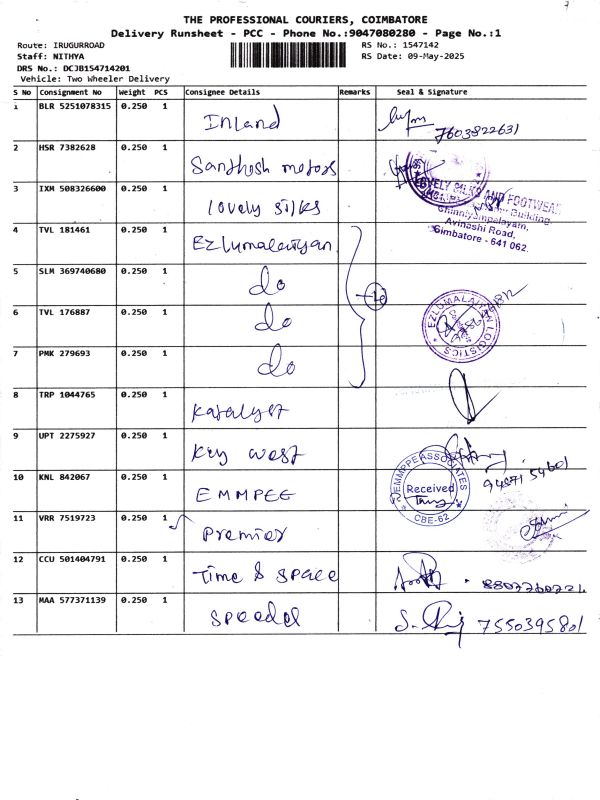 THE PROFESSIONAL COURIERS, COIMBATORE
Delivery Runsheet - PCC - Phone No.:9047080280 - Page No.:1
Route: IRUGURROAD
RS No.: 1547142
Staff: NITHYA
RS Date: 09-May-2025
DRS No.: DCJB154714201
Vehicle: Two Wheeler Delivery
S No Consignment No Weight PCS Consignee Details Remarks Seal & Signature
1 BLR 5251078315 0.250 1 Inland 7603822631
2 HSR 7382628 0.250 1 Santhosh motors
LOVELY SILKS AND FOOTWEAR
Building
Chinniyampalayam,
Avinashi Road,
Coimbatore - 641 062.
3 IXM 508326600 0.250 1 lovely silks
4 TVL 181461 0.250 1 Ezlumalaiyan
5 SLM 369740680 0.250 1 do
6 TVL 176887 0.250 1 do
EZLUMALAIYAN LOGISTICS
7 PMK 279693 0.250 1 do
8 TRP 1044765 0.250 1 Katalyst
9 UPT 2275927 0.250 1 Key west 94871 54601
10 KNL 842067 0.250 1 EMMPEE
EMMPPE ASSOCIATES
Received
CBE-62
11 VRR 7519723 0.250 1 Premier
12 CCU 501404791 0.250 1 Time & space
13 MAA 577371139 0.250 1 Speedel 7550395801